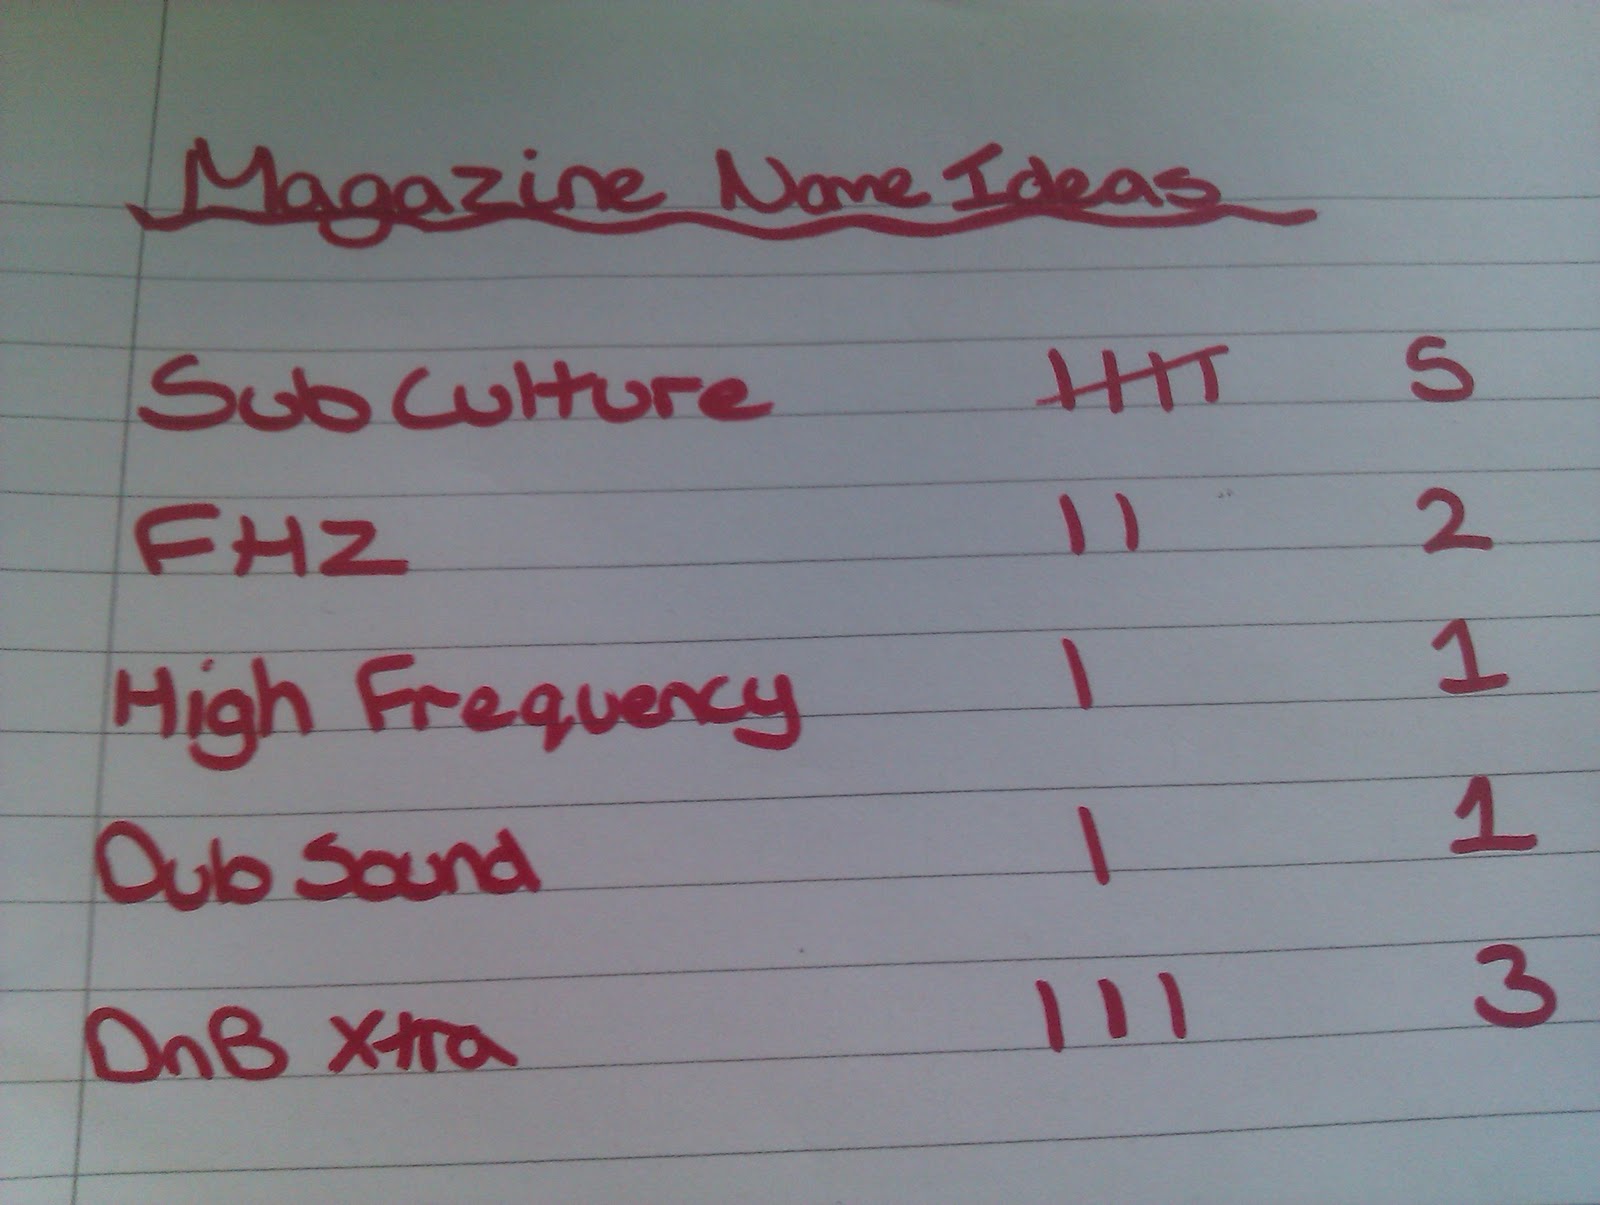 Magazine Name Ideas
Sub Culture 𝍸 5
FHZ II 2
High Frequency I 1
Dub Sound I 1
DnB Xtra III 3